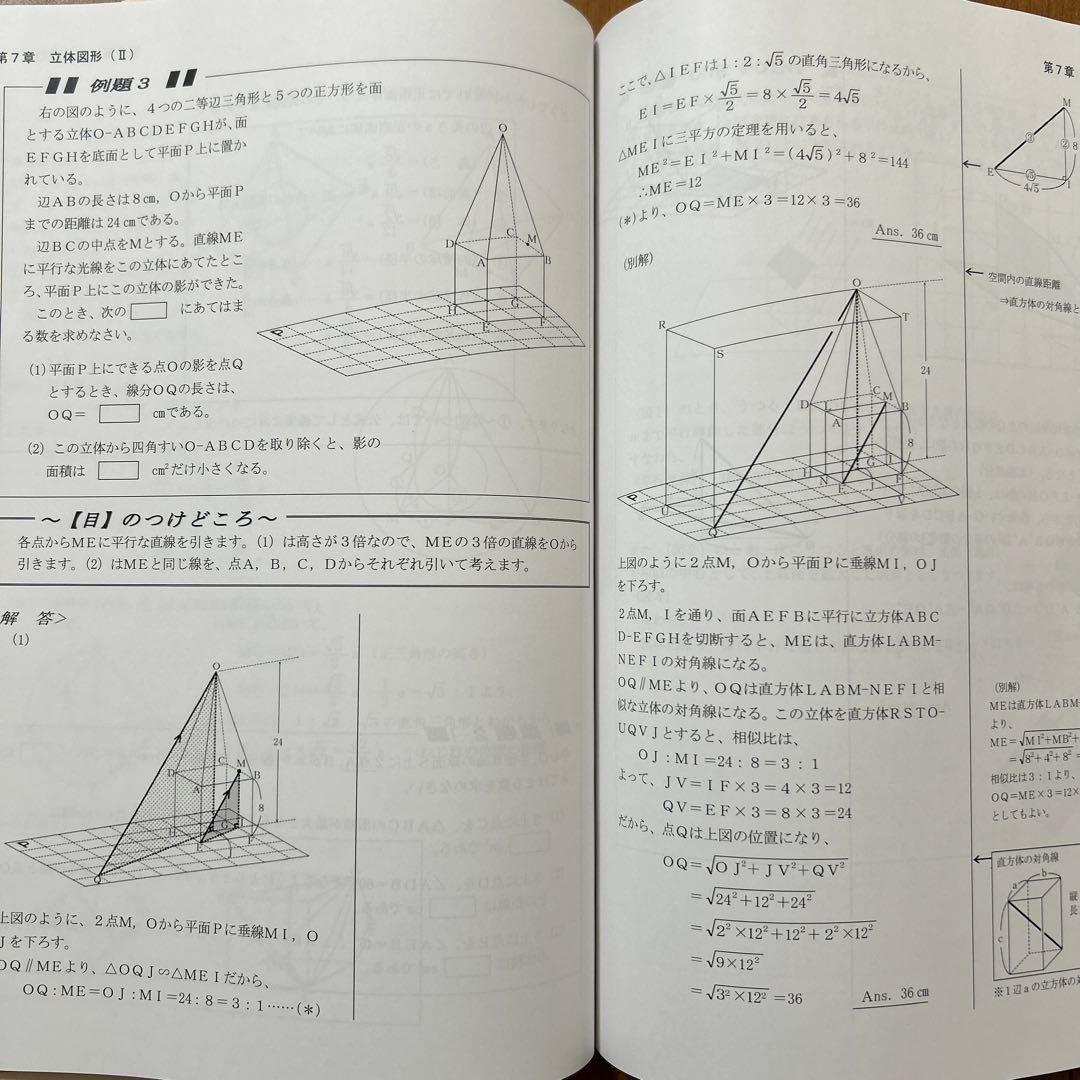 第7章 立体図形(Ⅱ)
例題3
右の図のように、4つの二等辺三角形と5つの正方形を面
とする立体O-ABCDEFGHが、面
EFGHを底面として平面P上に置か
れている。
辺ABの長さは8cm, Oから平面P
までの距離は24cmである。
辺BCの中点をMとする。直線ME
に平行な光線をこの立体にあてたとこ
ろ、平面P上にこの立体の影ができた。
このとき、次の□にあてはま
る数を求めなさい。
(1) 平面P上にできる点Oの影を点Q
とするとき、線分OQの長さは、
OQ= □ cmである。
(2) この立体から四角すいO-ABCDを取り除くと、影の
面積は □ cm²だけ小さくなる。
O
D
C
M
A
B
H
G
E
F
P
～【目】のつけどころ～
各点からMEに平行な直線を引きます。(1) は高さが3倍なので、MEの3倍の直線をOから
引きます。(2) はMEと同じ線を、点A, B, C, Dからそれぞれ引いて考えます。
解 答>
(1)
O
24
D
C
M
A
B
8
H
G
I
E
F
J
P
Q
上図のように、2点M, Oから平面Pに垂線MI, O
Jを下ろす。
OQ∥MEより、△OQJ∽△MEIだから、
OQ:ME=OJ:MI=24:8=3:1……(*)
第7章
ここで、△IEFは1:2:√5の直角三角形になるから、
EI=EF×√5/2=8×√5/2=4√5
△MEIに三平方の定理を用いると、
ME²=EI²+MI²=(4√5)²+8²=144
∴ME=12
(*)より、OQ=ME×3=12×3=36
Ans. 36cm
M
③
②
8
E
√5
I
4√5
(別解)
空間内の直線距離
⇒直方体の対角線と
O
R
T
S
24
D
L
C
M
A
B
8
H
N
G
I
E
J
F
P
U
V
Q
上図のように2点M, Oから平面Pに垂線MI, OJ
を下ろす。
2点M, Iを通り、面AEFBに平行に立方体ABC
D-EFGHを切断すると、MEは、直方体LABM-
NEFIの対角線になる。
OQ∥MEより、OQは直方体LABM-NEFIと相
似な立体の対角線になる。この立体を直方体RSTO-
UQVJとすると、相似比は、
OJ:MI=24:8=3:1
よって、JV=IF×3=4×3=12
QV=EF×3=8×3=24
だから、点Qは上図の位置になり、
OQ=√OJ²+JV²+QV²
=√24²+12²+24²
=√2²×12²+12²+2²×12²
=√9×12²
=√3²×12²=36
Ans. 36cm
(別解)
MEは直方体LABM-
より、
ME=√MI²+MB²+
=√8²+4²+8²=
相似比は3:1より、
OQ=ME×3=12×
としてもよい。
直方体の対角線
a
b
c
縦
長
※1辺aの立方体の対